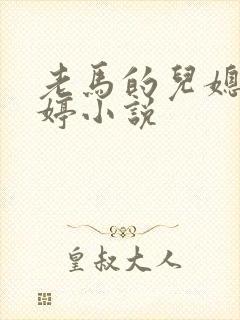 老馬的兒媳
婷小說
皇叔大人